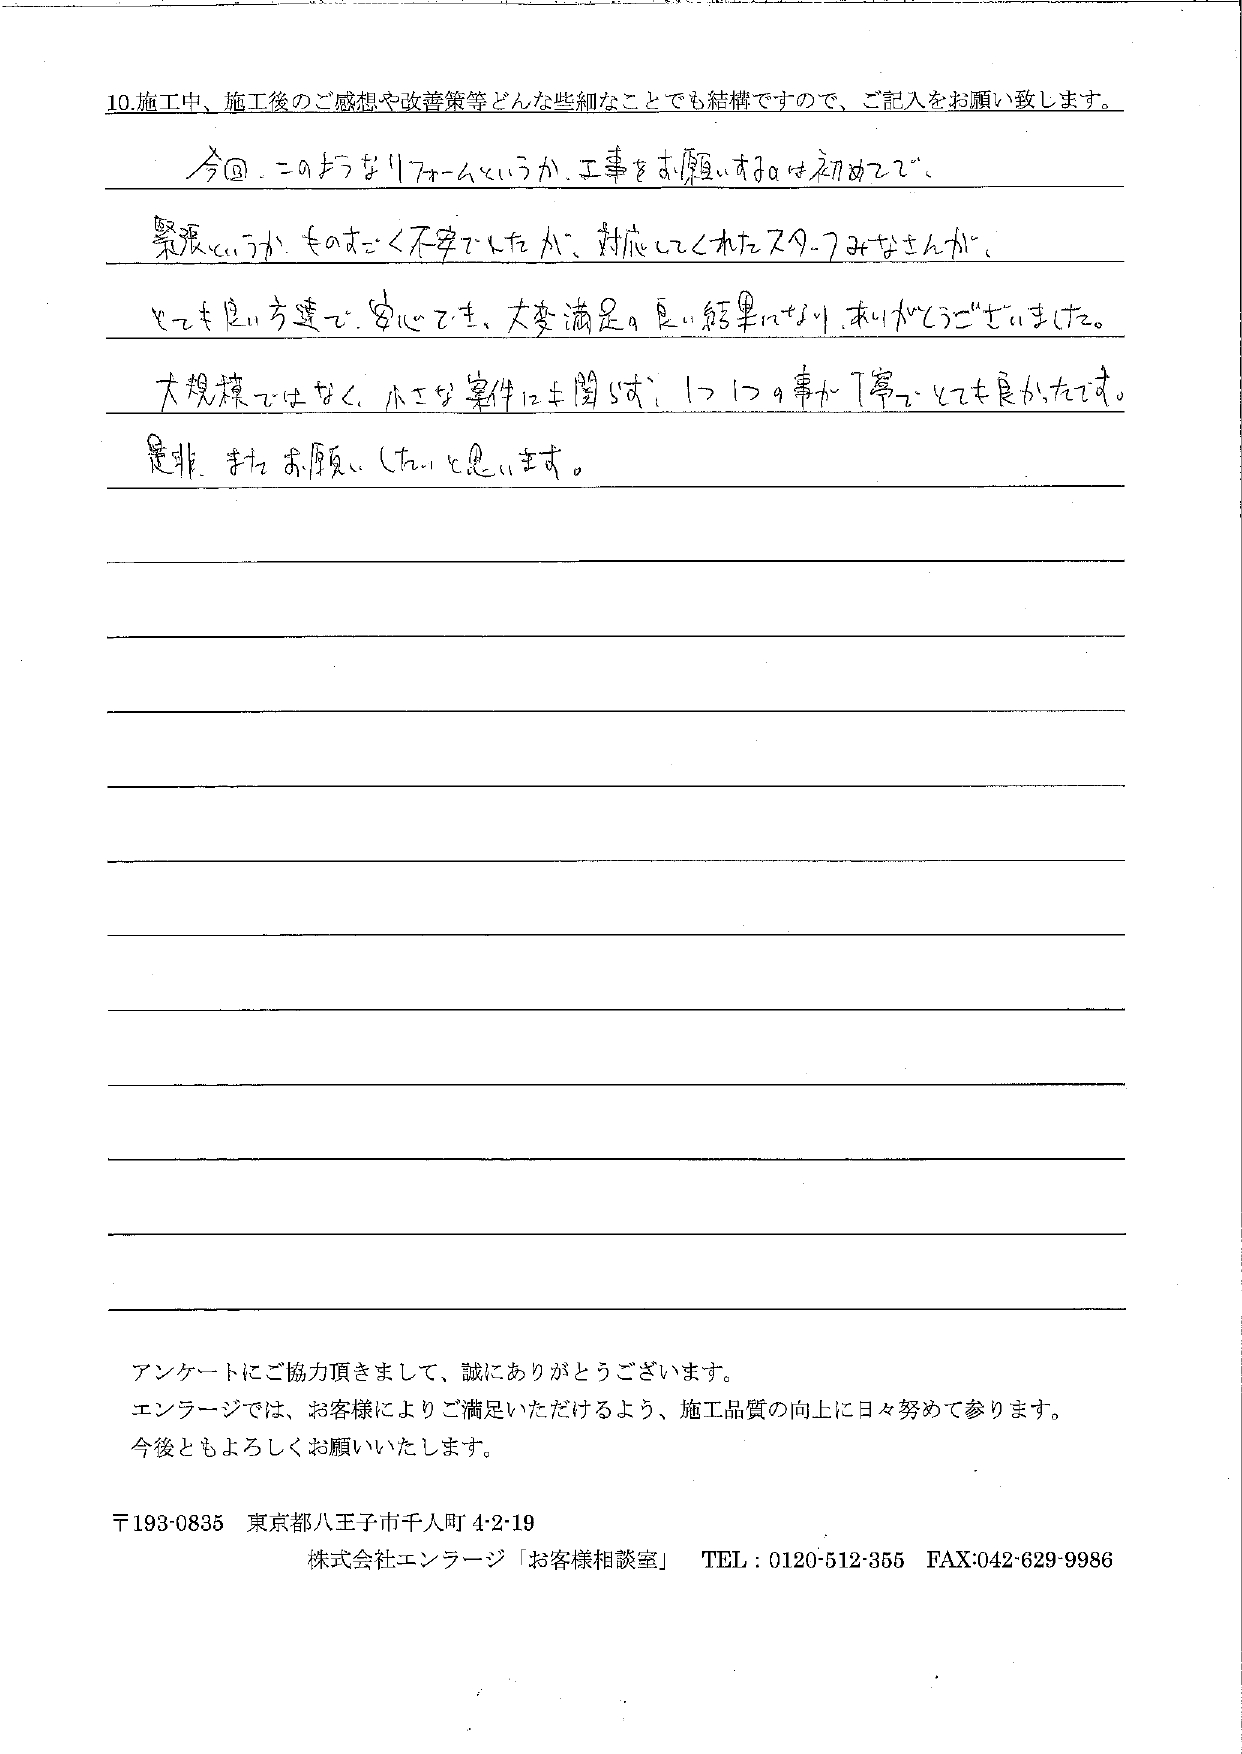 10.施工中、施工後のご感想や改善策等どんな些細なことでも結構ですので、ご記入をお願い致します。
今回、このようなリフォームというか、工事をお願いするのは初めてで、
緊張というか、ものすごく不安でしたが、対応してくれたスタッフみなさんが、
とても良い方達で、安心でき、大変満足の良い結果になり、ありがとうございました。
大規模ではなく、小さな案件にも関らず、1つ1つの事が丁寧でとても良かったです。
是非、またお願いしたいと思います。
アンケートにご協力頂きまして、誠にありがとうございます。
エンラージでは、お客様によりご満足いただけるよう、施工品質の向上に日々努めて参ります。
今後ともよろしくお願いいたします。
〒193-0835 東京都八王子市千人町 4-2-19
株式会社エンラージ「お客様相談室」 TEL : 0120-512-355 FAX:042-629-9986